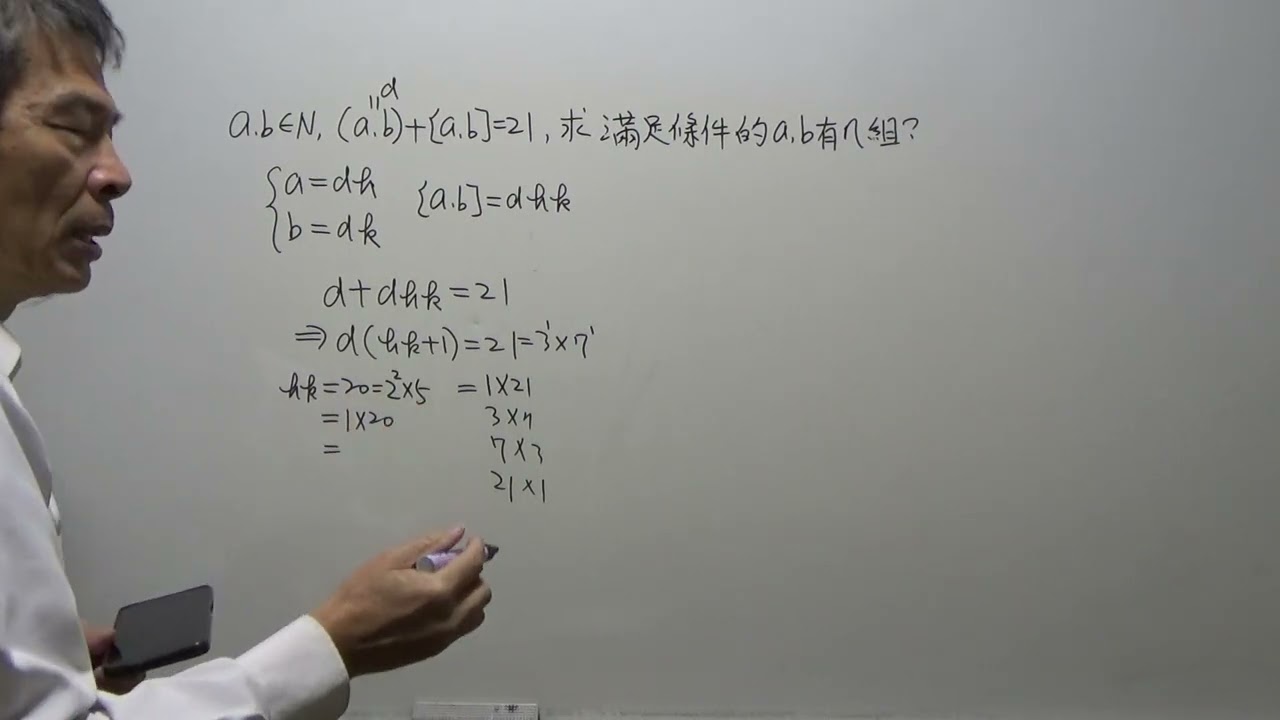 d
a.b∈N, (a.b)+[a.b]=21, 求滿足條件的a.b有几組?
a=dh
[a.b]=dhk
b=dk
d+dhk=21
⇒d(hk+1)=21=3¹×7¹
hk=20=2²×5 =1×21
=1×20 3×7
= 7×3
21×1